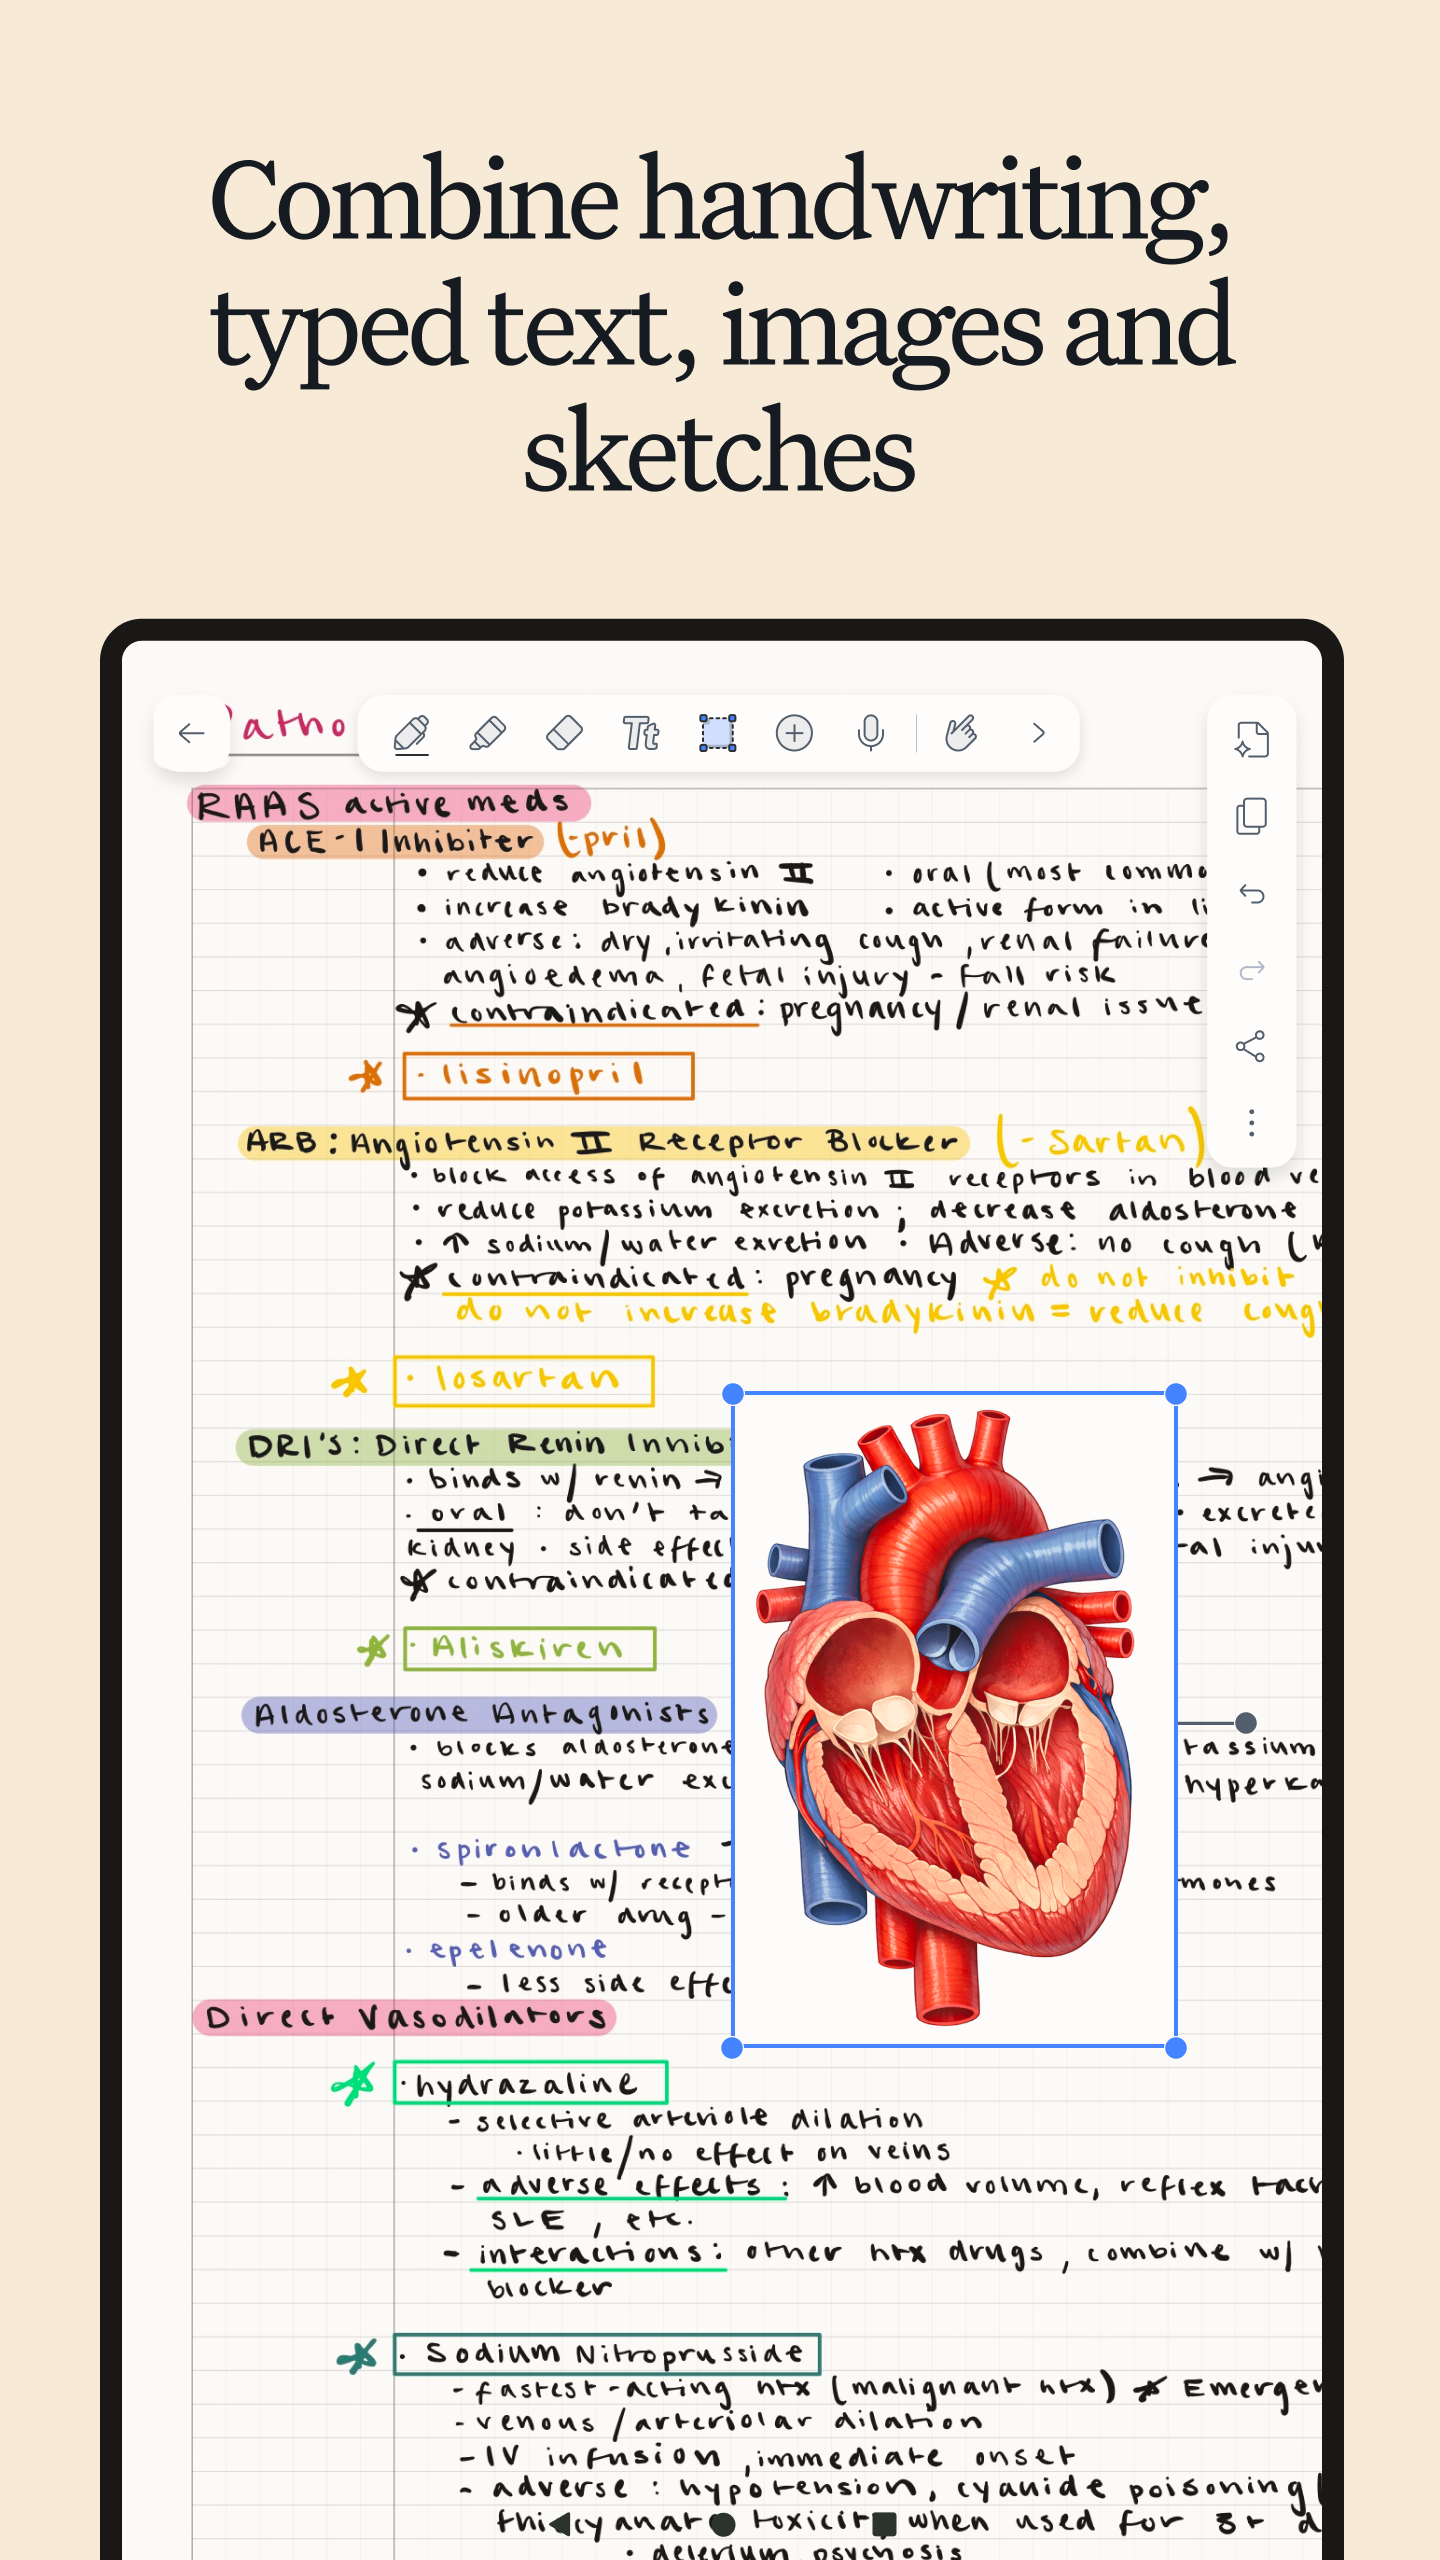 Combine handwriting,
typed text, images and
sketches
Patho
Tt
RAAS active meds
ACE-1 Inhibiter (-pril)
• reduce angiotensin II • oral (most commo
• increase bradykinin • active form in li
• adverse: dry, irritating cough, renal failure
angioedema, fetal injury - fall risk
contraindicated: pregnancy / renal issue
· lisinopril
ARB: Angiotensin II Receptor Blocker (-Sartan)
• block access of angiotensin II receptors in blood ve
• reduce potassium excretion; decrease aldosterone
• ↑ sodium/water exretion • Adverse: no cough (
contraindicated: pregnancy do not inhibit
do not increase bradykinin = reduce coug
· losartan
DRI's: Direct Renin Inhib
• binds w/ renin → → angi
· oral : don't ta • excrete
kidney · side effec al injur
contraindicated
· Aliskiren
Aldosterone Antagonists
• blocks aldosterone tassium
sodium/water exc hyperka
· spironlactone -
- binds w/ recept mones
- older drug -
· epelenone
- less side effe
Direct Vasodilators
· hydrazaline
- selective arteriole dilation
· little/no effect on veins
- adverse effects: ↑ blood volume, reflex tach
SLE, etc.
- interactions: other htx drugs, combine w/
blocker
· Sodium Nitroprusside
- fastest-acting htx (malignant htx) Emergen
- venous/arteriolar dilation
- IV infusion, immediate onset
- adverse: hypotension, cyanide poisoning (
thi cyanat toxicit when used for 3+ d
• delerium, psychosis